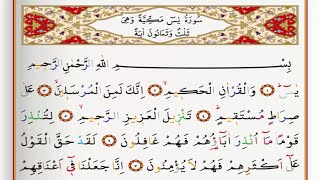 سُورَةُ يٰسٓ مَكِّيَّةٌ وَهِيَ
ثَلٰثٌ وَثَمَانُونَ اٰيَةً
بِسْمِ اللّٰهِ الرَّحْمٰنِ الرَّحِيمِ
يٰسٓ ﴿١﴾ وَالْقُرْاٰنِ الْحَكِيمِ ﴿٢﴾ اِنَّكَ لَمِنَ الْمُرْسَلِينَ ﴿٣﴾ عَلٰى
صِرَاطٍ مُسْتَقِيمٍ ﴿٤﴾ تَنْزِيلَ الْعَزِيزِ الرَّحِيمِ ﴿٥﴾ لِتُنْذِرَ
قَوْمًا مَٓا اُنْذِرَ اٰبَٓاؤُ۬هُمْ فَهُمْ غَافِلُونَ ﴿٦﴾ لَقَدْ حَقَّ الْقَوْلُ
عَلٰٓى اَكْثَرِهِمْ فَهُمْ لَا يُؤْمِنُونَ ﴿٧﴾ اِنَّا جَعَلْنَا فِٓي اَعْنَاقِهِمْ